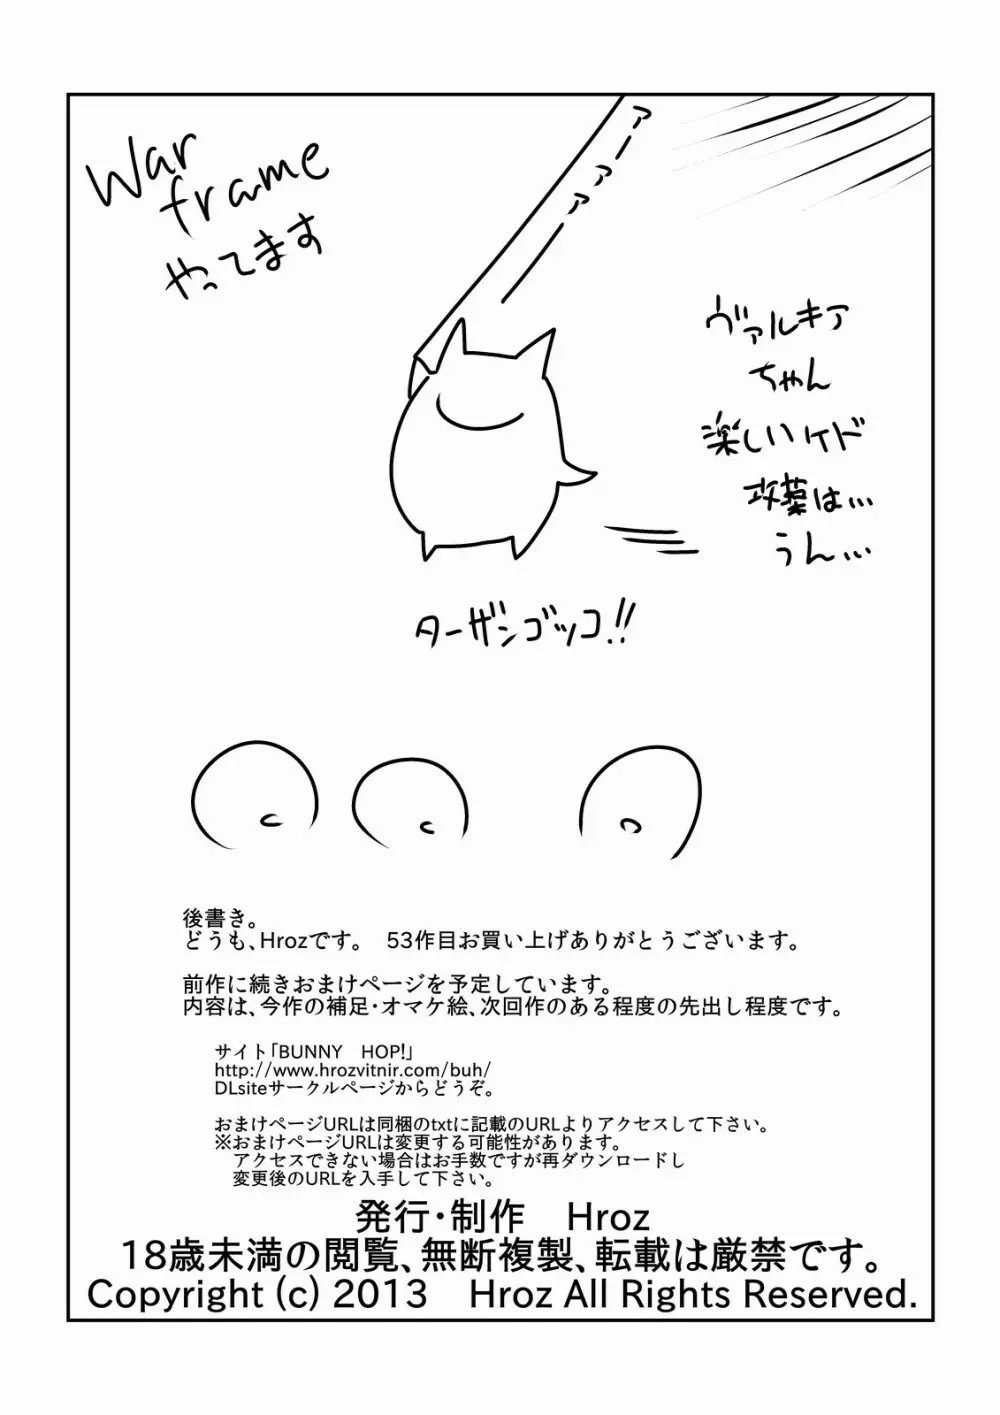 War
frame
やってます
アーアアアー
ヴァルキア
ちゃん
楽しいケド
攻薬は…
うん…
ターザンゴッコ!!
後書き。
どうも、Hrozです。　53作目お買い上げありがとうございます。
前作に続きおまけページを予定しています。
内容は、今作の補足・オマケ絵、次回作のある程度の先出し程度です。
サイト「BUNNY　HOP!」
http://www.hrozvitnir.com/buh/
DLsiteサークルページからどうぞ。
おまけページURLは同梱のtxtに記載のURLよりアクセスして下さい。
※おまけページURLは変更する可能性があります。
アクセスできない場合はお手数ですが再ダウンロードし
変更後のURLを入手して下さい。
発行・制作　Hroz
18歳未満の閲覧、無断複製、転載は厳禁です。
Copyright (c) 2013　Hroz All Rights Reserved.